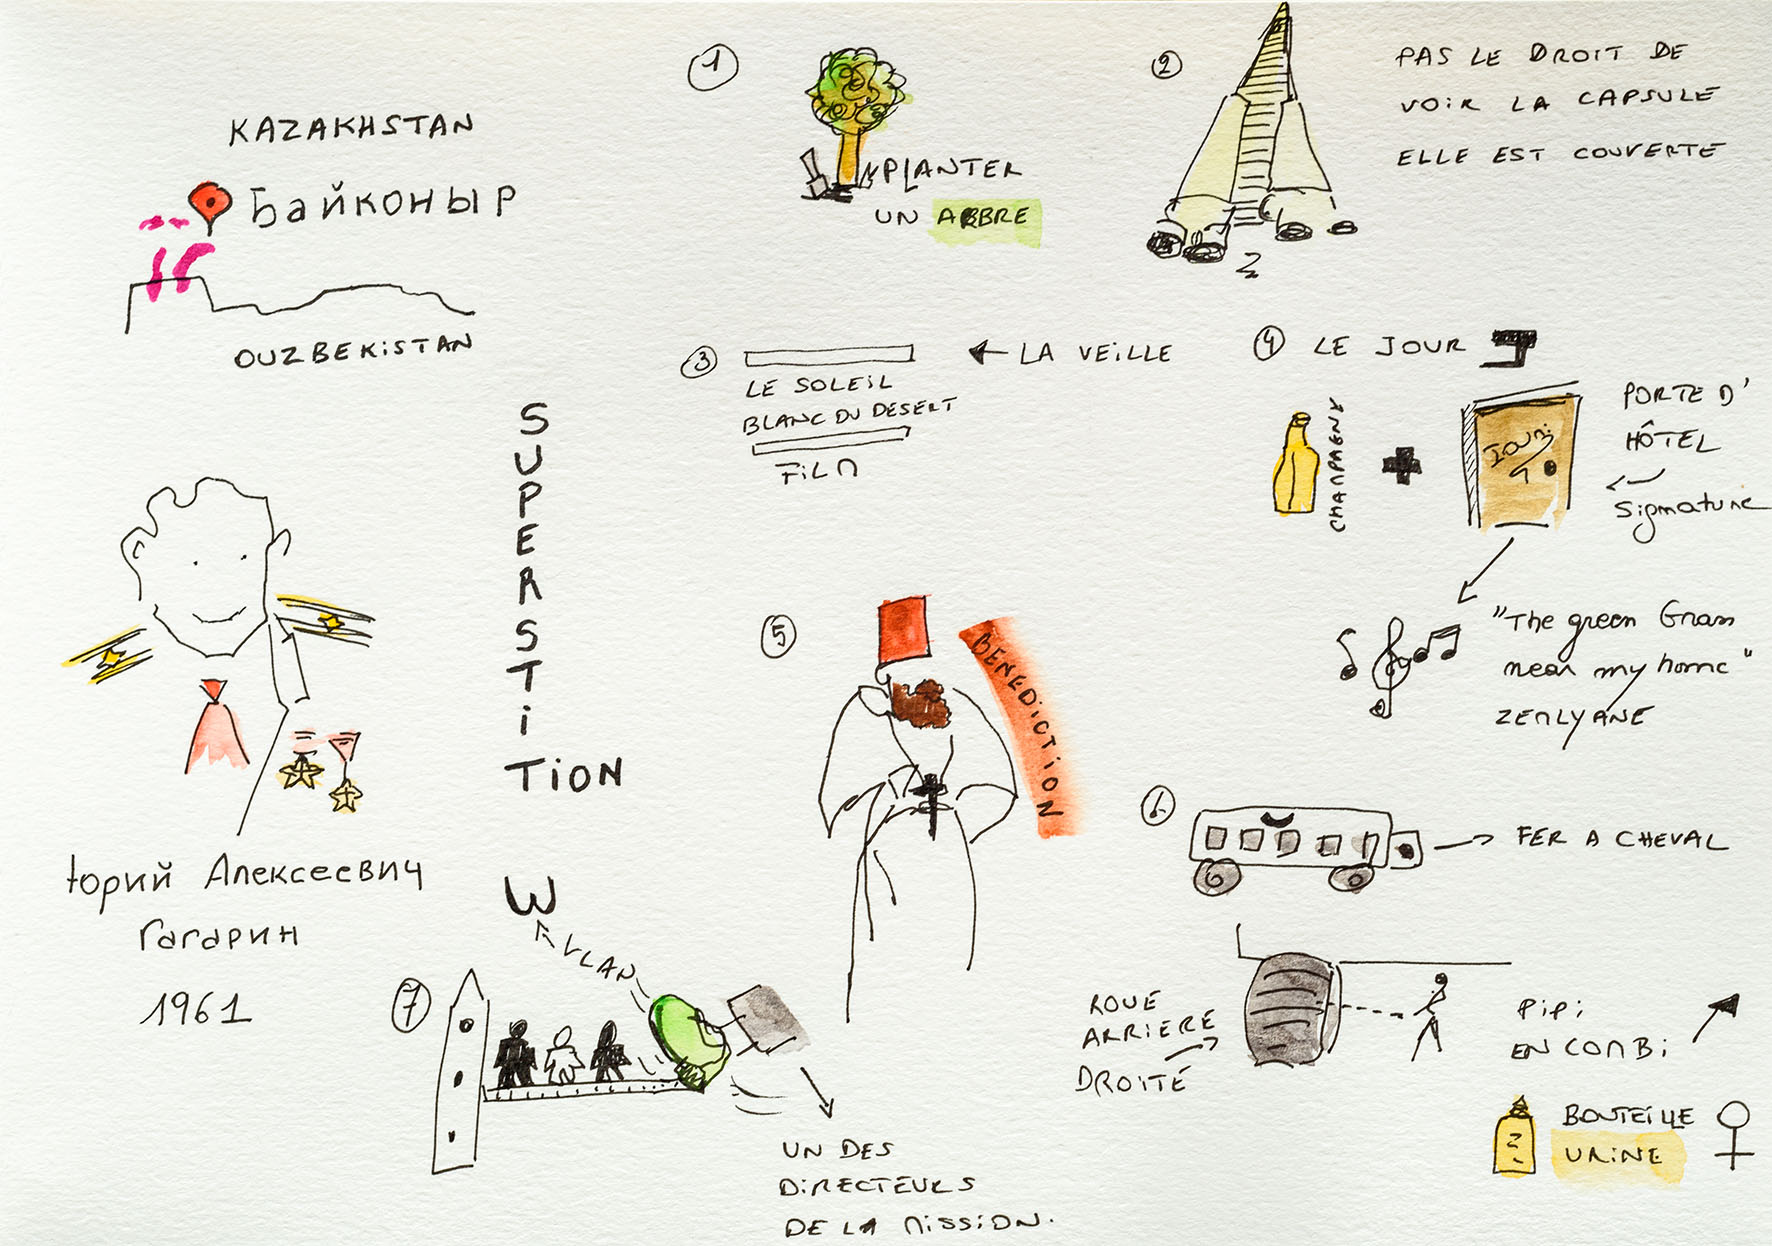 KAZAKHSTAN
Байконыр
OUZBEKISTAN
SUPERSTiTiON
Юрий Алексеевич
Гагарин
1961
1
PLANTER
UN ARBRE
2
PAS LE DROIT DE
VOiR LA CAPSULE
ELLE EST COUVERTE
3
LE SOLEiL
BLANC DU DESERT
FiLM
LA VEiLLE
4
LE JOUR J
CHAMPAGNE
PORTE D'
HÔTEL
Signature
"The green Grass
near my home"
ZEMLYANE
5
BENEDICTION
6
FER A CHEVAL
ROUE
ARRIERE
DROiTE
PiPi
EN COMBi
BOUTEiLLE
URiNE
7
VLAN
UN DES
DiRECTEURS
DE LA MiSSiON.